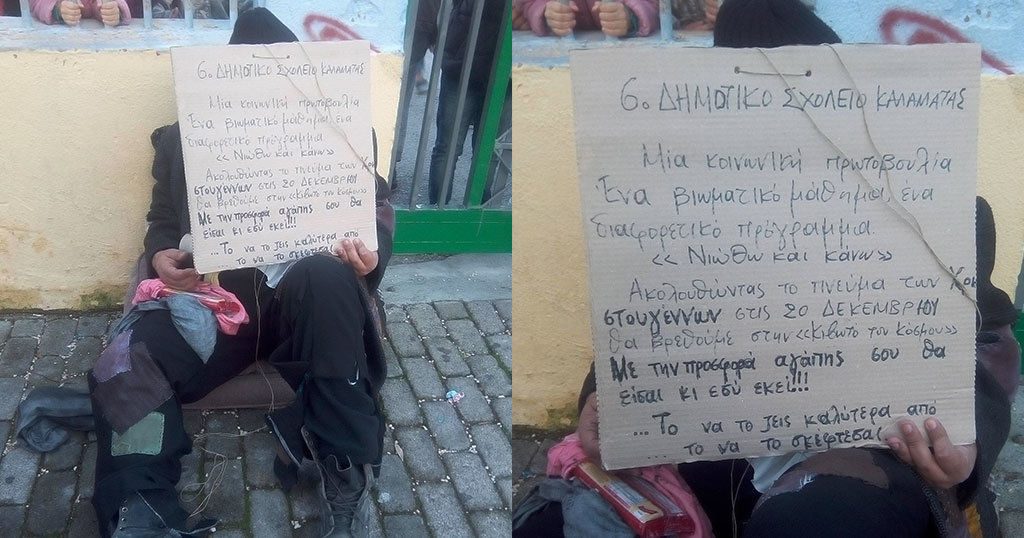 6ο ΔΗΜΟΤΙΚΟ ΣΧΟΛΕΙΟ ΚΑΛΑΜΑΤΑΣ
Μία κοινωνική πρωτοβουλία
Ένα βιωματικό μάθημα, ένα
διαφορετικό πρόγραμμα.
«Νιώθω και κάνω»
Ακολουθώντας το πνεύμα των Χρι
στουγέννων στις 20 ΔΕΚΕΜΒΡΙΟΥ
θα βρεθούμε στην «Κιβωτό του Κόσμου»
Με την προσφορά αγάπης σου θα
είσαι κι εσύ εκεί!!!
...Το να το ζεις καλύτερα από
το να το σκέφτεσαι
6ο ΔΗΜΟΤΙΚΟ ΣΧΟΛΕΙΟ ΚΑΛΑΜΑΤΑΣ
Μία κοινωνική πρωτοβουλία
Ένα βιωματικό μάθημα, ένα
διαφορετικό πρόγραμμα.
«Νιώθω και κάνω»
Ακολουθώντας το πνεύμα των Χρι
στουγέννων στις 20 ΔΕΚΕΜΒΡΙΟΥ
θα βρεθούμε στην «Κιβωτό του Κόσμου»
Με την προσφορά αγάπης σου θα
είσαι κι εσύ εκεί!!!
...Το να το ζεις καλύτερα από
το να το σκέφτεσαι